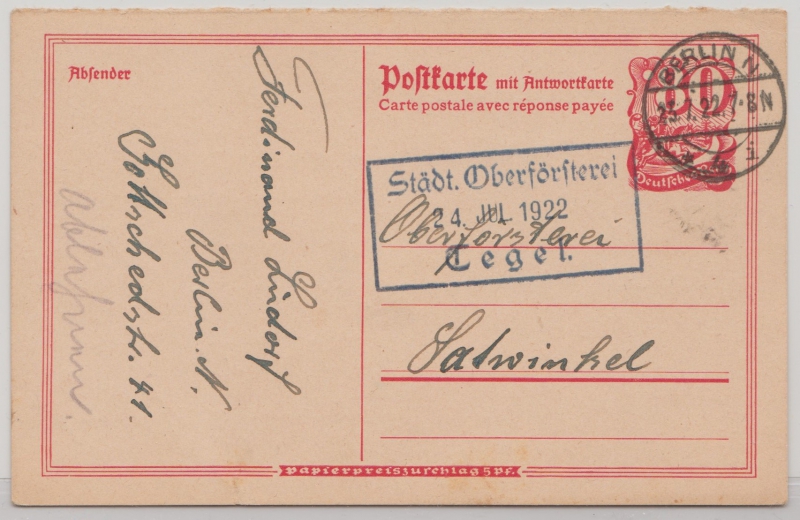 Absender
Ferdinand Lindorf
Berlin N.
Gottschedstr. 41.
Postkarte mit Antwortkarte
Carte postale avec réponse payée
BERLIN N.
7-8N
Deutsches
Städt. Oberförsterei
24. JUL. 1922
Tegel.
Oberförsterei
Satwinkel
Papierpreiszuschlag 5 Pf.